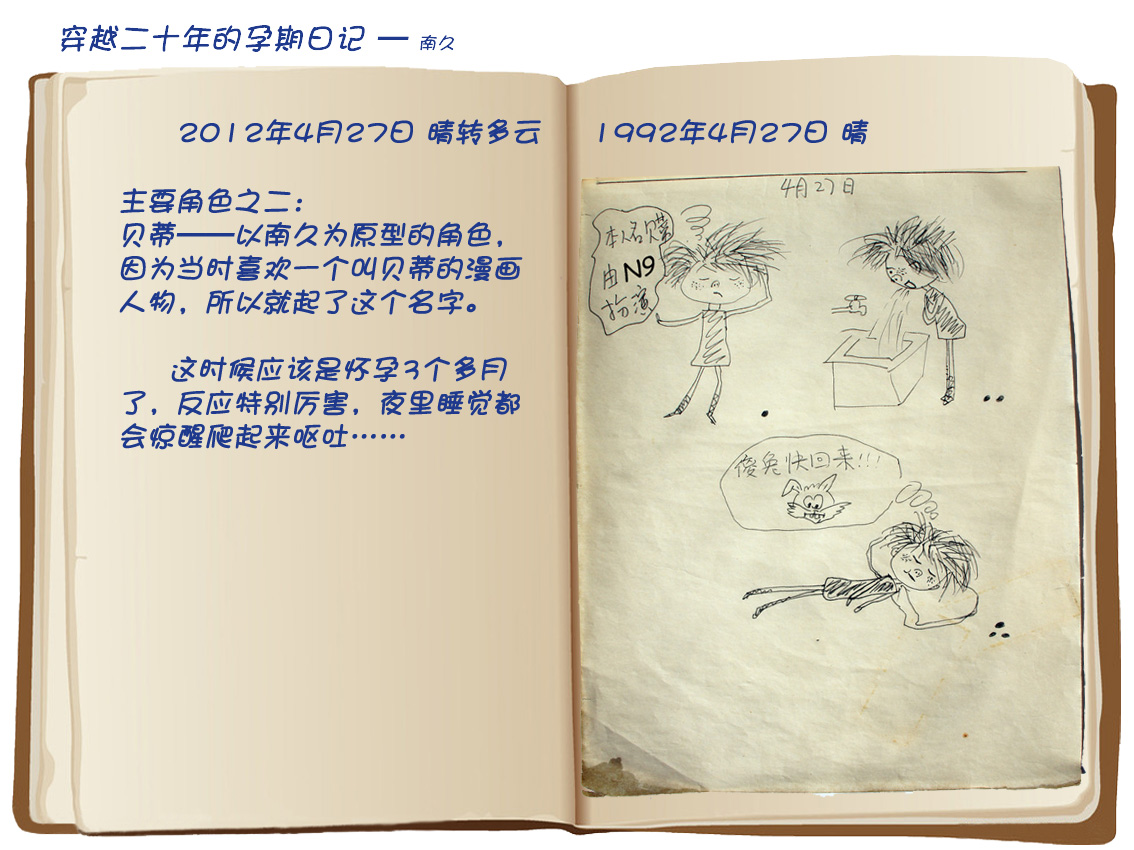 穿越二十年的孕期日记 — 南久
2012年4月27日 晴转多云
主要角色之二：
贝蒂——以南久为原型的角色，
因为当时喜欢一个叫贝蒂的漫画
人物，所以就起了这个名字。
这时候应该是怀孕3个多月
了，反应特别厉害，夜里睡觉都
会惊醒爬起来呕吐……
1992年4月27日 晴
4月27日
本人名贝蒂
由N9
扮演
傻兔快回来!!!